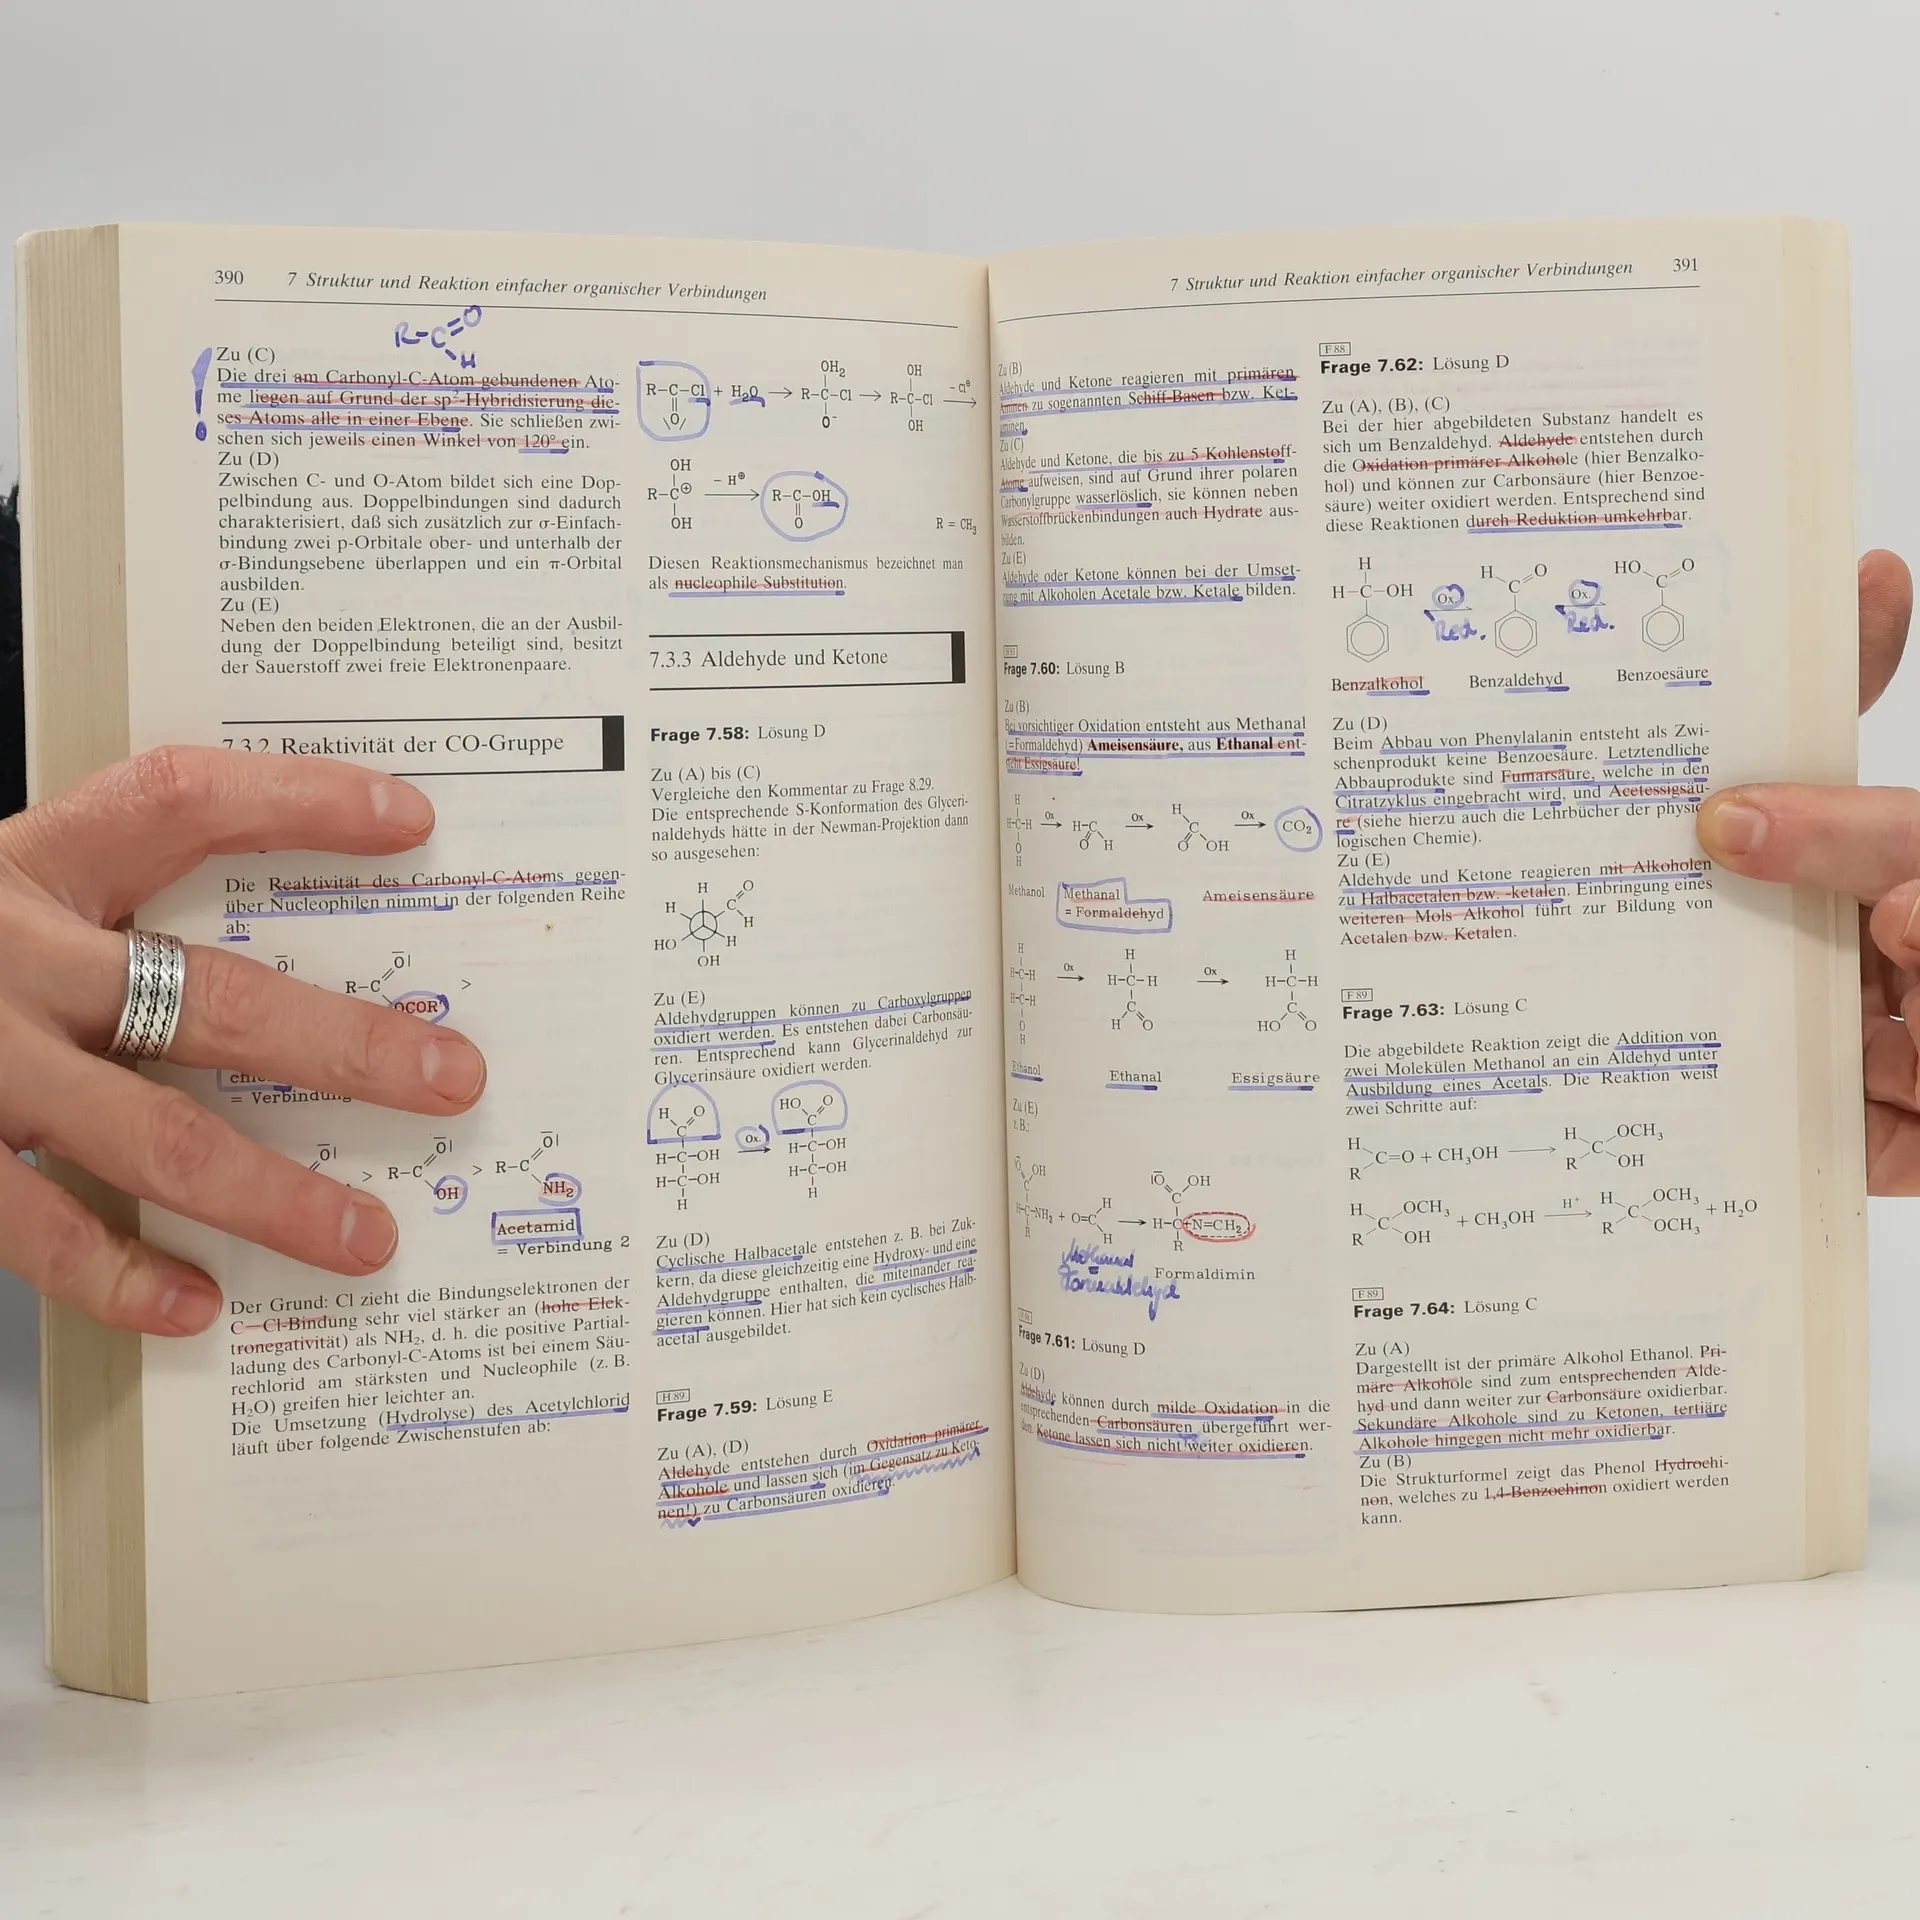 390 7 Struktur und Reaktion einfacher organischer Verbindungen
R-C=O
H
Zu (C)
Die drei am Carbonyl-C-Atom gebundenen Ato-
me liegen auf Grund der sp²-Hybridisierung die-
ses Atoms alle in einer Ebene. Sie schließen zwi-
schen sich jeweils einen Winkel von 120° ein.
Zu (D)
Zwischen C- und O-Atom bildet sich eine Dop-
pelbindung aus. Doppelbindungen sind dadurch
charakterisiert, daß sich zusätzlich zur σ-Einfach-
bindung zwei p-Orbitale ober- und unterhalb der
σ-Bindungsebene überlappen und ein π-Orbital
ausbilden.
Zu (E)
Neben den beiden Elektronen, die an der Ausbil-
dung der Doppelbindung beteiligt sind, besitzt
der Sauerstoff zwei freie Elektronenpaare.
7.3.2 Reaktivität der CO-Gruppe
Die Reaktivität des Carbonyl-C-Atoms gegen-
über Nucleophilen nimmt in der folgenden Reihe
ab:
O| O|
R-C >
OCOR'
= Verbindung
O| O| O|
> R-C > R-C
OH NH₂
Acetamid
= Verbindung 2
Der Grund: Cl zieht die Bindungselektronen der
C—Cl-Bindung sehr viel stärker an (hohe Elek-
tronegativität) als NH₂, d. h. die positive Partial-
ladung des Carbonyl-C-Atoms ist bei einem Säu-
rechlorid am stärksten und Nucleophile (z. B.
H₂O) greifen hier leichter an.
Die Umsetzung (Hydrolyse) des Acetylchlorid
läuft über folgende Zwischenstufen ab:
OH₂ OH
R-C-Cl + H₂O → R-C-Cl → R-C-Cl - Cl⊖ →
|O| O⁻ OH
OH
R-C⊕ - H⊕ → R-C-OH
OH O R = CH₃
Diesen Reaktionsmechanismus bezeichnet man
als nucleophile Substitution.
7.3.3 Aldehyde und Ketone
Frage 7.58: Lösung D
Zu (A) bis (C)
Vergleiche den Kommentar zu Frage 8.29.
Die entsprechende S-Konformation des Glyceri-
naldehyds hätte in der Newman-Projektion dann
so ausgesehen:
H O
H C
H
HO H
OH
Zu (E)
Aldehydgruppen können zu Carboxylgruppen
oxidiert werden. Es entstehen dabei Carbonsäu-
ren. Entsprechend kann Glycerinaldehyd zur
Glycerinsäure oxidiert werden.
H O HO O
C Ox. C
H-C-OH → H-C-OH
H-C-OH H-C-OH
H H
Zu (D)
Cyclische Halbacetale entstehen z. B. bei Zuk-
kern, da diese gleichzeitig eine Hydroxy- und eine
Aldehydgruppe enthalten, die miteinander rea-
gieren können. Hier hat sich kein cyclisches Halb-
acetal ausgebildet.
H 89
Frage 7.59: Lösung E
Zu (A), (D)
Aldehyde entstehen durch Oxidation primärer
Alkohole und lassen sich (im Gegensatz zu Keto-
nen!) zu Carbonsäuren oxidieren.
7 Struktur und Reaktion einfacher organischer Verbindungen 391
Zu (B)
Aldehyde und Ketone reagieren mit primären
Aminen zu sogenannten Schiff-Basen bzw. Ket-
iminen.
Zu (C)
Aldehyde und Ketone, die bis zu 5 Kohlenstoff-
Atome aufweisen, sind auf Grund ihrer polaren
Carbonylgruppe wasserlöslich, sie können neben
Wasserstoffbrückenbindungen auch Hydrate aus-
bilden.
Zu (E)
Aldehyde oder Ketone können bei der Umset-
zung mit Alkoholen Acetale bzw. Ketale bilden.
Frage 7.60: Lösung B
Zu (B)
Bei vorsichtiger Oxidation entsteht aus Methanal
(=Formaldehyd) Ameisensäure, aus Ethanal ent-
steht Essigsäure!
H
H-C-H Ox → H-C Ox → H C Ox → CO₂
O O H O OH
H
Methanol Methanal Ameisensäure
= Formaldehyd
H H H
H-C-H Ox → H-C-H Ox → H-C-H
H-C-H C C
O H O HO O
H
Ethanol Ethanal Essigsäure
Zu (E)
z. B.:
O OH |O OH
C H C
H-C-NH₂ + O=C → H-C-N=CH₂
R H R
Methanal
=
Formaldehyd
Formaldimin
Frage 7.61: Lösung D
Zu (D)
Aldehyde können durch milde Oxidation in die
entsprechenden Carbonsäuren übergeführt wer-
den. Ketone lassen sich nicht weiter oxidieren.
F 88
Frage 7.62: Lösung D
Zu (A), (B), (C)
Bei der hier abgebildeten Substanz handelt es
sich um Benzaldehyd. Aldehyde entstehen durch
die Oxidation primärer Alkohole (hier Benzalko-
hol) und können zur Carbonsäure (hier Benzoe-
säure) weiter oxidiert werden. Entsprechend sind
diese Reaktionen durch Reduktion umkehrbar.
H H O HO O
H-C-OH Ox. C Ox. C
Red. Red.
Benzalkohol Benzaldehyd Benzoesäure
Zu (D)
Beim Abbau von Phenylalanin entsteht als Zwi-
schenprodukt keine Benzoesäure. Letztendliche
Abbauprodukte sind Fumarsäure, welche in den
Citratzyklus eingebracht wird, und Acetessigsäu-
re (siehe hierzu auch die Lehrbücher der physio-
logischen Chemie).
Zu (E)
Aldehyde und Ketone reagieren mit Alkoholen
zu Halbacetalen bzw. -ketalen. Einbringung eines
weiteren Mols Alkohol führt zur Bildung von
Acetalen bzw. Ketalen.
F 89
Frage 7.63: Lösung C
Die abgebildete Reaktion zeigt die Addition von
zwei Molekülen Methanol an ein Aldehyd unter
Ausbildung eines Acetals. Die Reaktion weist
zwei Schritte auf:
H H OCH₃
C=O + CH₃OH → C
R R OH
H OCH₃ H⁺ H OCH₃
C + CH₃OH → C + H₂O
R OH R OCH₃
F 89
Frage 7.64: Lösung C
Zu (A)
Dargestellt ist der primäre Alkohol Ethanol. Pri-
märe Alkohole sind zum entsprechenden Alde-
hyd und dann weiter zur Carbonsäure oxidierbar.
Sekundäre Alkohole sind zu Ketonen, tertiäre
Alkohole hingegen nicht mehr oxidierbar.
Zu (B)
Die Strukturformel zeigt das Phenol Hydrochi-
non, welches zu 1,4-Benzochinon oxidiert werden
kann.